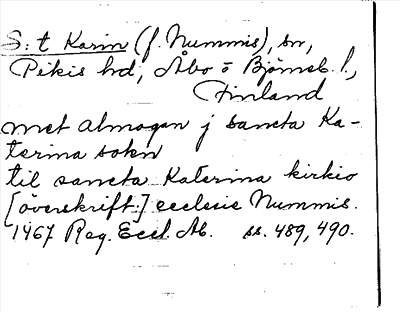 S:t Karin (f. Nummis), sn,
Pikis hd, Åbo o Björneb. l.,
Finland
met almogan j sancta Ka-
terina sokn
til sancta Katerina kirkio
[överskrift:] ecclesie Nummis.
1467 Reg. Eccl. Ab. ss. 489, 490.